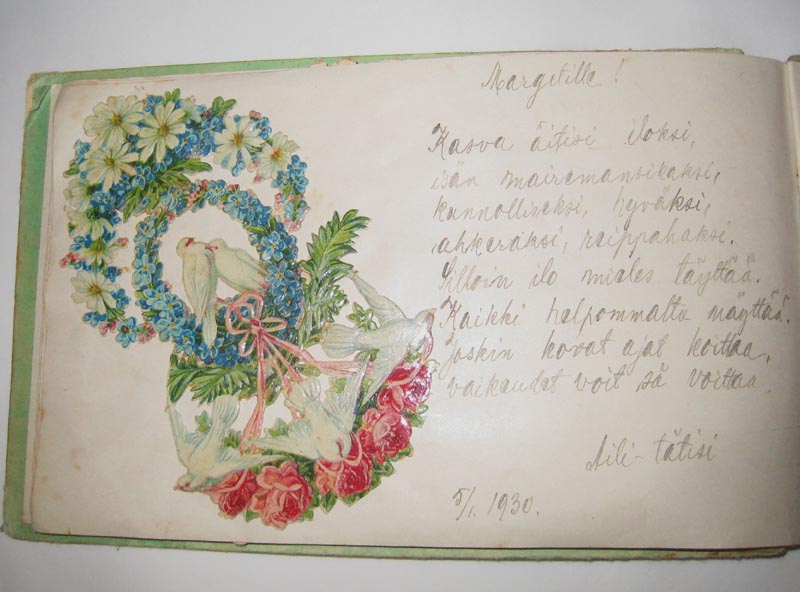 Margetille!
Kasva äitisi iloksi,
isän mairemansikaksi,
kunnolliseksi, hyväksi,
ahkeraksi, reippahaksi.
Silloin ilo mieles täyttää.
Kaikki helpommalta näyttää.
Joskin kovat ajat koittaa,
vaikeudet voit sä voittaa.
Aili-tätisi
5/1. 1930.